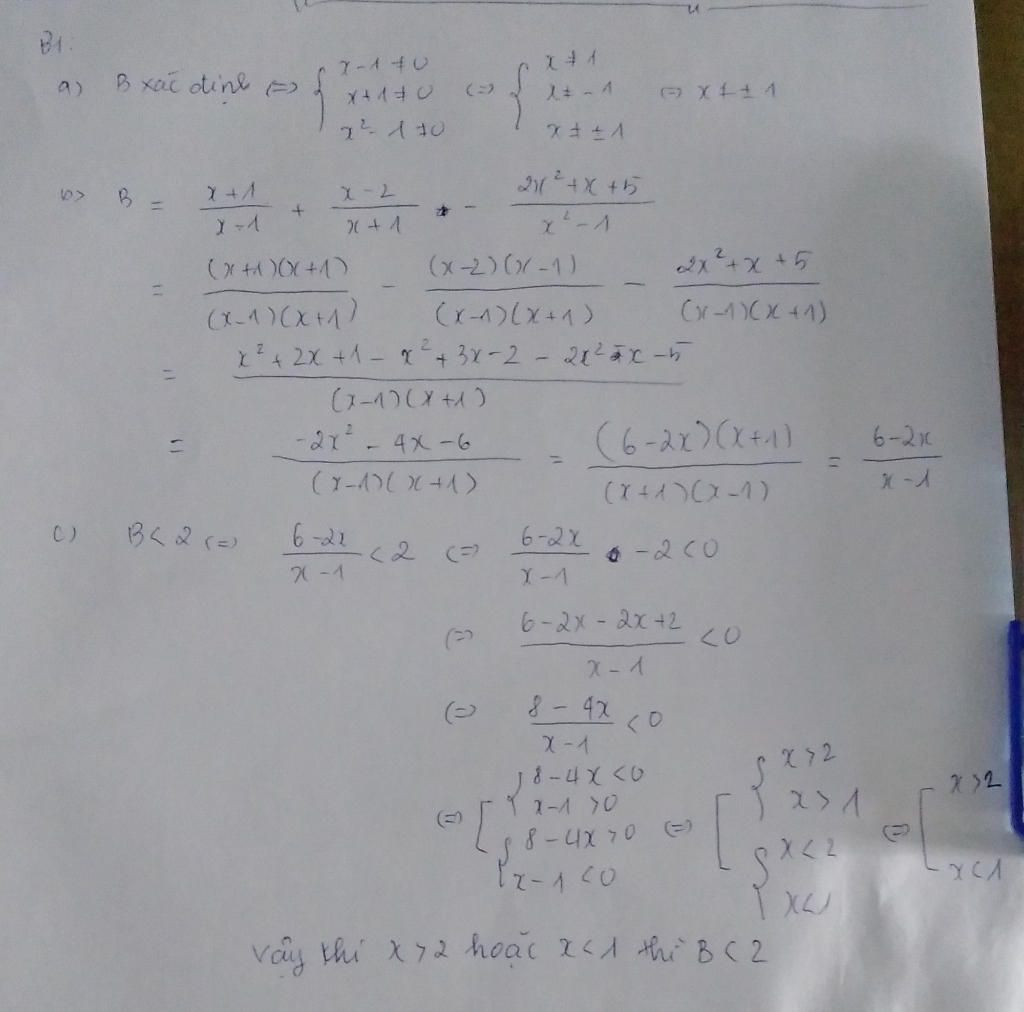 B1:
a) B xác định <=> { x-1 ≠ 0 ; x+1 ≠ 0 ; x² - 1 ≠ 0 <=> { x ≠ 1 ; x ≠ -1 ; x ≠ ± 1 <=> x ≠ ± 1
b) B = (x+1)/(x-1) + (x-2)/(x+1) - (2x²+x+5)/(x²-1)
= ((x+1)(x+1))/((x-1)(x+1)) - ((x-2)(x-1))/((x-1)(x+1)) - (2x²+x+5)/((x-1)(x+1))
= (x²+2x+1-x²+3x-2-2x²-x-5)/((x-1)(x+1))
= (-2x²-4x-6)/((x-1)(x+1)) = ((6-2x)(x+1))/((x+1)(x-1)) = (6-2x)/(x-1)
c) B < 2 <=> (6-2x)/(x-1) < 2 <=> (6-2x)/(x-1) - 2 < 0
<=> (6-2x-2x+2)/(x-1) < 0
<=> (8-4x)/(x-1) < 0
<=> [ { 8-4x < 0 ; x-1 > 0 ; { 8-4x > 0 ; x-1 < 0 <=> [ { x > 2 ; x > 1 ; { x < 2 ; x < 1 <=> [ x > 2 ; x < 1
Vậy khi x > 2 hoặc x < 1 thì B < 2